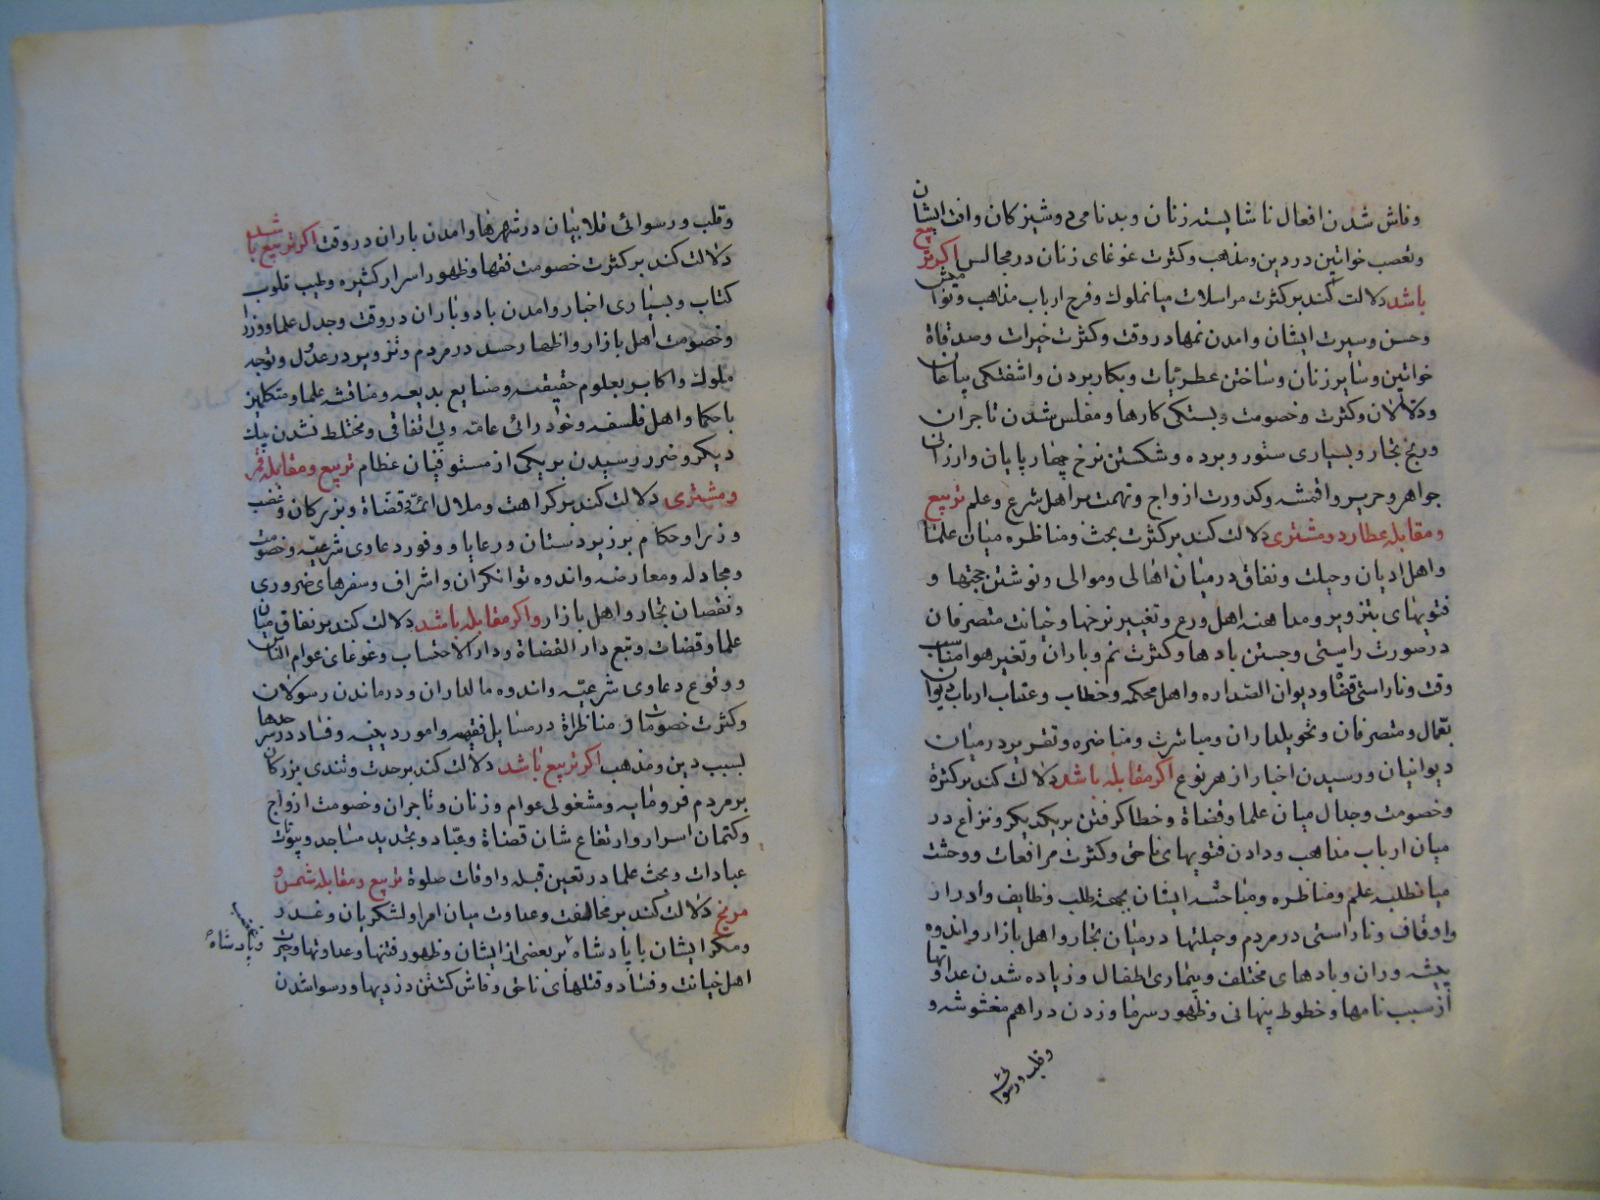 وفاش شدن افعال ناشایسته زنان و بدنامی دوشیزکان وافت ایشان
وتعصب خواتین در دین ومذهب وکثرت غوغای زنان در مجالس اکر تربیع
باشد دلالت کند بر کثرت مراسلات میان ملوک وفرح ارباب مذاهب ونوا میش
وحسن وسیرت ایشان وامدن نمها در وقت وکثرت خیرات وصدقاة
خواتین وسایر زنان وساختن عطریات وبکار بردن واشفتکی بیاعان
ودلالان وکثرت وخصومت وبستکی کارها ومفلس شدن تاجران
ورنج تجار وبسیاری ستور وبرده وشکستن نرخ چهار پایان وارزانی
جواهر وحریر واقمشه وکدورت ازواج وتهمت بر اهل شرع وعلم تربیع
ومقابله عطارد ومشتری دلالت کند بر کثرت بحث ومناظره میان علما
واهل ادیان وحیلت ونفاق در میان اهالی وموالی ونوشتن حجتها و
فتویهای بتزویر ومداهنه اهل ورع وتغییر نرخها وخیانت متصرفان
در صورت راستی وجستن بادها وکثرت نم وباران وتغیر هوا مناسب
وقت وناراستی قضاة ودیوان الصداره واهل محکمه وخطاب وعتاب ارباب دیوان
بعمال ومتصرفان وتحویلداران ومباشرت ومناضره وتقریر در میان
دیوانیان ورسیدن اخبار از هر نوع اکر مقابله باشد دلالت کند بر کثرة
وخصومت وجدال میان علما وقضاة وخطا کرفتن بر یکدیکر ونزاع در
میان ارباب مذاهب ودادن فتویهای ناحق وکثرت مرافعات ووحشت
میان طلبه علم ومناظره ومباحثه ایشان بجهة طلب وظایف وادرار
واوقاف وناراستی در مردم وحیلتها در میان تجار واهل بازار واندوه
پیشه وران وبادهای مختلف وبیماری اطفال وزیاده شدن عداوتها
از سبب نامها وخطوط پنهانی وظهور سرما وزدن دراهم مغشوشه و
وقلب ورسوائی
وقلب ورسوائی قلابیان در شهرها وامدن باران در وقت اکر تربیع باشد
دلالت کند بر کثرت خصومت فقها وظهور اسرار کثیره وطیب قلوب
کتاب وبسیاری اخبار وامدن باد وباران در وقت وجدل علما ووزرا
وخصومت اهل بازار واظهار حسد در مردم وتزویر در عدول وتوجه
ملوک واکابر بعلوم حقیقه وصنایع بدیعه ومناقشه علما ومتکلمین
با حکما واهل فلسفه وخود رائی عامه وبی اتفاقی ومختلط نشدن بیک
دیکر وضرر رسیدن بریکی از مستوفیان عظام تربیع ومقابله قمر
ومشتری دلالت کند بر کراهت وملال ائمه وقضاة وبزرکان وغضب
وزرا وحکام بر زیردستان ورعایا ووفور دعاوی شرعیه وخصومت
ومجادله ومعارضه واندوه توانکران واشراف وسفرهای ضروری
ونقصان تجار واهل بازار واکر مقابله باشد دلالت کند بر نفاق میان
علما وقضات وتبع دار القضاة ودار الاحتساب وغوغای عوام الناس
ووقوع دعاوی شرعیه واندوه مالداران ودرماندن رسولان
وکثرت خصومات از مناظرة در مسایل فقهیه وامور دینیه وفساد در سرحدها
بسبب دین ومذهب اکر تربیع باشد دلالت کند بر حدت وتندی بزرکان
بر مردم فرومایه ومشغولی عوام وزنان وتاجران وخصومت ازواج
وکتمان اسرار وارتفاع شان قضاة وعباد وتجدید مساجد وبیوتات
عبادات وبحث علما در تعین قبله واوقات صلوة تربیع ومقابله شمس و
مریخ دلالت کند بر مخالفت وعداوت میان امرا ولشکریان وغدر
ومکر ایشان با پادشاه بر بعضی از ایشان وظهور فتنها وعداوتها وجرات
وپادشاه
اهل خیانت وفساد وقتلهای ناحق وفاش کشتن دزدیها ورسوا شدن